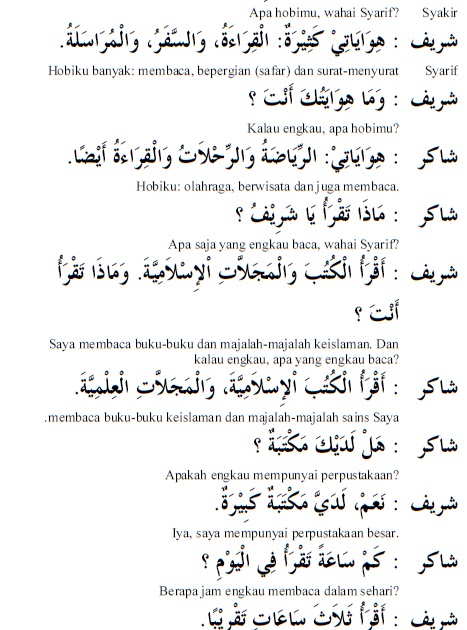 Apa hobimu, wahai Syarif? Syakir
شريف : هِوَايَاتِيْ كَثِيْرَةٌ: الْقِرَاءَةُ، وَالسَّفَرُ، وَالْمُرَاسَلَةُ.
Hobiku banyak: membaca, bepergian (safar) dan surat-menyurat Syarif
شريف : وَمَا هِوَايَتُكَ أَنْتَ ؟
Kalau engkau, apa hobimu?
شاكر : هِوَايَاتِيْ: الرِّيَاضَةُ وَالرِّحْلَاتُ وَالْقِرَاءَةُ أَيْضًا.
Hobiku: olahraga, berwisata dan juga membaca.
شاكر : مَاذَا تَقْرَأُ يَا شَرِيْفُ ؟
Apa saja yang engkau baca, wahai Syarif?
شريف : أَقْرَأُ الْكُتُبَ وَالْمَجَلاَّتِ الْإِسْلَامِيَّةَ. وَمَاذَا تَقْرَأُ
أَنْتَ ؟
Saya membaca buku-buku dan majalah-majalah keislaman. Dan
kalau engkau, apa yang engkau baca?
شاكر : أَقْرَأُ الْكُتُبَ الْإِسْلَامِيَّةَ، وَالْمَجَلاَّتِ الْعِلْمِيَّةَ.
.membaca buku-buku keislaman dan majalah-majalah sains Saya
شاكر : هَلْ لَدَيْكَ مَكْتَبَةٌ ؟
Apakah engkau mempunyai perpustakaan?
شريف : نَعَمْ، لَدَيَّ مَكْتَبَةٌ كَبِيْرَةٌ.
Iya, saya mempunyai perpustakaan besar.
شاكر : كَمْ سَاعَةً تَقْرَأُ فِي الْيَوْمِ ؟
Berapa jam engkau membaca dalam sehari?
شريف : أَقْرَأُ ثَلَاثَ سَاعَاتٍ تَقْرِيْبًا.